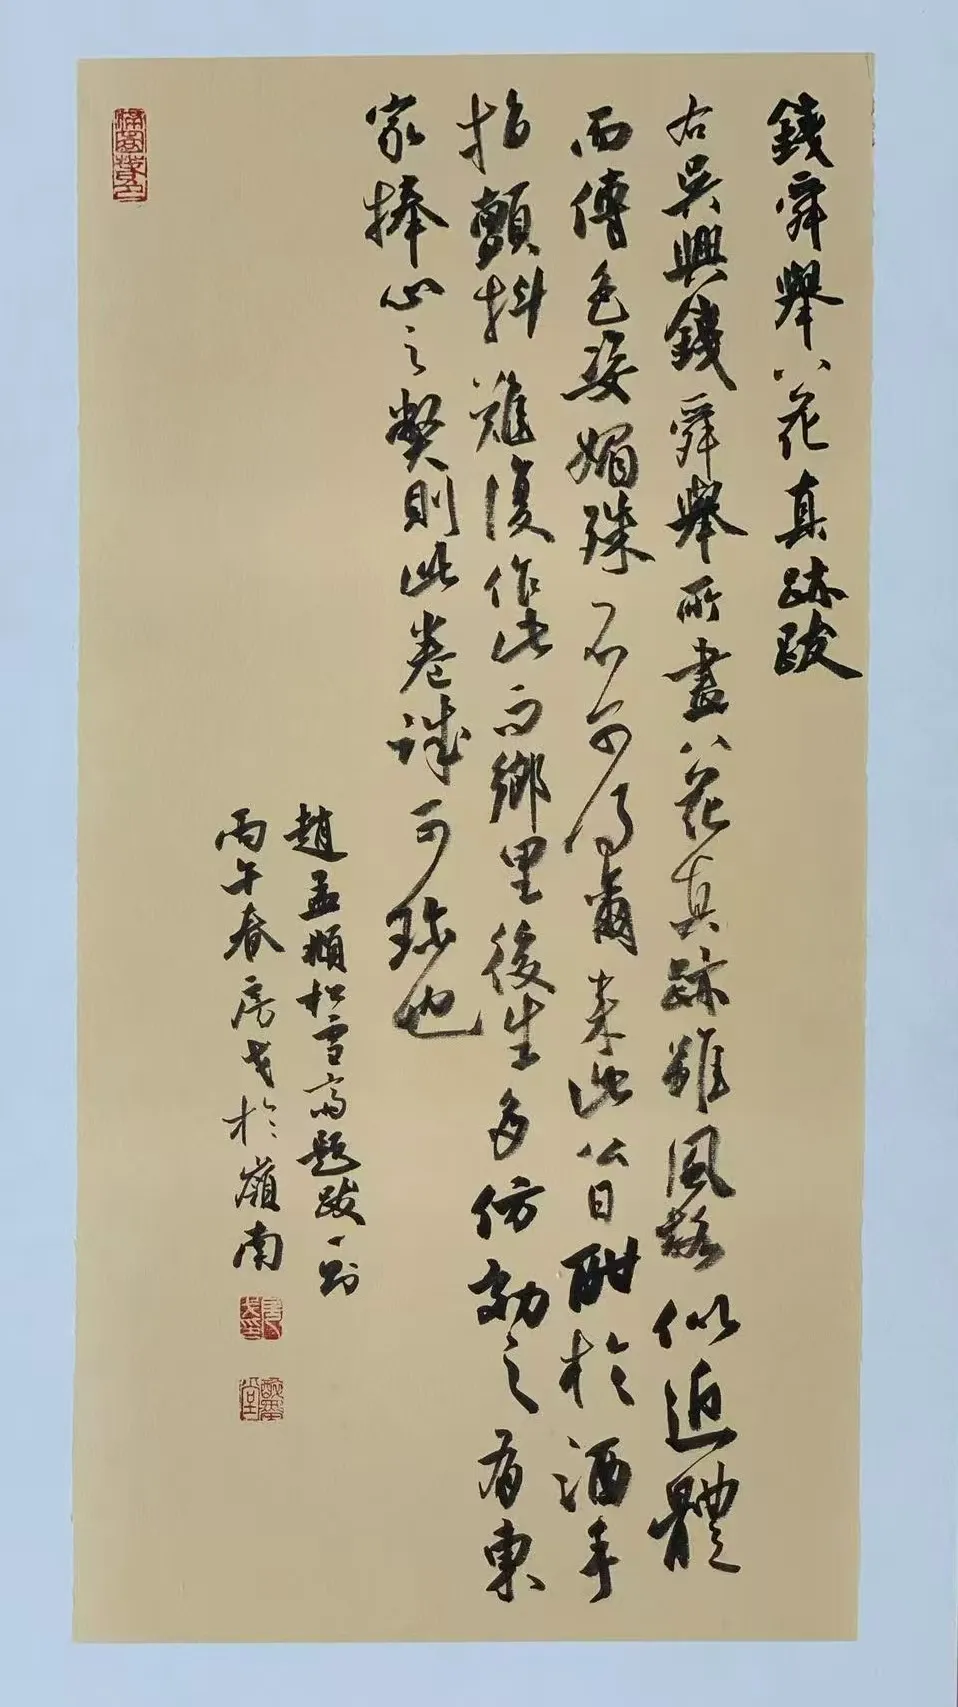 錢舜舉八花真跡跋
右吳興錢舜舉所畫八花真跡雖風格似近體
而傅色姿媚殊不可得爾來此公日酣於酒手
指顫抖難復作此而鄉里後生多仿効之有東
家捧心之弊則此卷誠可珍也
趙孟頫松雪齋題跋一則
丙午春房戈於嶺南